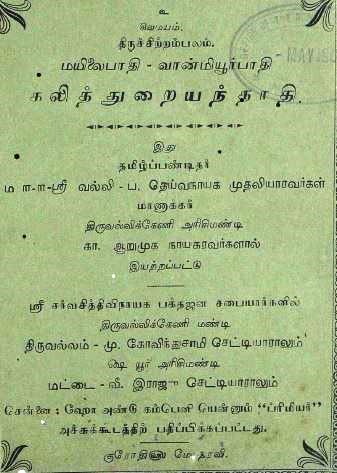 உ
சிவமயம்.
திருச்சிற்றம்பலம்.
மயிலைபாதி - வான்மியூர்பாதி
கலித்துறையந்தாதி.
இது
தமிழ்ப்பண்டிதர்
ம-ா-ா-ஸ்ரீ வல்லி - ப. தெய்வநாயக முதலியாரவர்கள்
மாணாக்கர்
திருவல்லிக்கேணி அரிசிமண்டி
கா. ஆறுமுக நாயகரவர்களால்
இயற்றப்பட்டு
ஸ்ரீ சர்வசித்திவிநாயக பக்தஜன சபையார்களில்
திருவல்லிக்கேணி மண்டி
திருவல்லம் - மு. கோவிந்தசாமி செட்டியாராலும்
ஷை யூர் அரிசிமண்டி
மட்டை - வீ. இராஜு செட்டியாராலும்
சென்னை: ஹோ அண்டு கம்பெனி யென்னும் "ப்ரிமியர்"
அச்சுக்கூடத்திற் பதிப்பிக்கப்பட்டது.
குரோதிஸு மீ